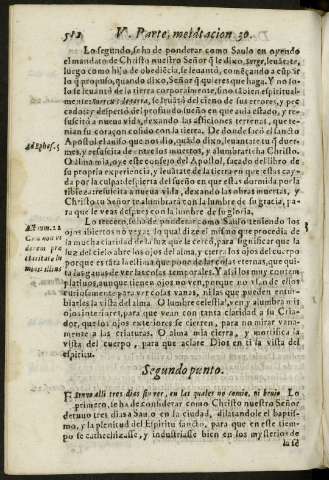 512 V. Parte, meditacion 30.
Lo segundo, se ha de ponderar como Saulo en oyendo
el mandato de Christo nuestro Señor q̃ le dixo, Surge, leuãtate,
luego como hijo de obediẽcia, se leuantó, comẽçando a cũplir
lo q̃ propuso, quando dixo, Señor q̃ quieres que haga. Y no so-
lo se leuantó de la tierra corporalmente, sino tãbien espiritual-
mente: Surrexit de terra, se leuãtó del cieno de sus errores, y pec
cados: y despertó del profundo sueño en que auia estado, y re-
suscitó a nueua vida, dexando las aficiones terrenas, que te-
nian su coraçon cosido con la tierra. De donde sacó el sancto
Ad Ephes. 5 Apostol el auiso que nos dio, quãdo dixo, leuantate tu q̃ duer-
mes, y resuscita de entre los muertos, y alumbrarte ha Christo.
O alma mia, oye este consejo del Apostol, sacado del libro de
su propria experiencia, y leuãtate de la tierra en que estas cay-
da por la culpa: despierta del sueño en que estas dormida por la
tibieza: resuscita a nueua vida, dexando las obras muertas, y
Christo tu Señor te alumbrará con la lumbre de su gracia, pa-
ra que le veas despues con la lumbre de su gloria.
Lo tercero, se ha de ponderar: como Saulo teniendo los
Actuum. 22 ojos abiertos no veya: lo qual dize el mismo que procedia de
la mucha claridad de la luz que le cercó, para significar que la
luz del cielo abre los ojos del alma, y cierra los ojos del cuerpo
porque es tanta la estima que pone de las cosas eternas, que qui
ta las ganas de ver las cosas temporales. Y assi los muy contem
platiuos, aunque tienen ojos no ven, porque no vsan de ellos
curiosamente para ver cosas vanas, ni las que pueden entur-
biarles la vista del alma. O lumbre celestial, ven y alumbra mis
ojos interiores, para que vean con tanta claridad a su Cria-
dor, que los ojos exteriores se cierren, para no mirar vana-
mente a las criaturas. O alma mia cierra, y mortifica la
vista del cuerpo, para que aclare Dios en ti la vista del
espiritu.
Segundo punto.
Estuuo alli tres dias sin ver, en los quales no comio, ni beuio. Lo
primero, se ha de considerar como Christo nuestro Señor
detuuo tres dias a Saulo en la ciudad, dilatandole el baptis-
mo, y la plenitud del Espiritu sancto, para que en este tiem-
po se cathechizasse, y industriasse bien en los mysterios de
la fè